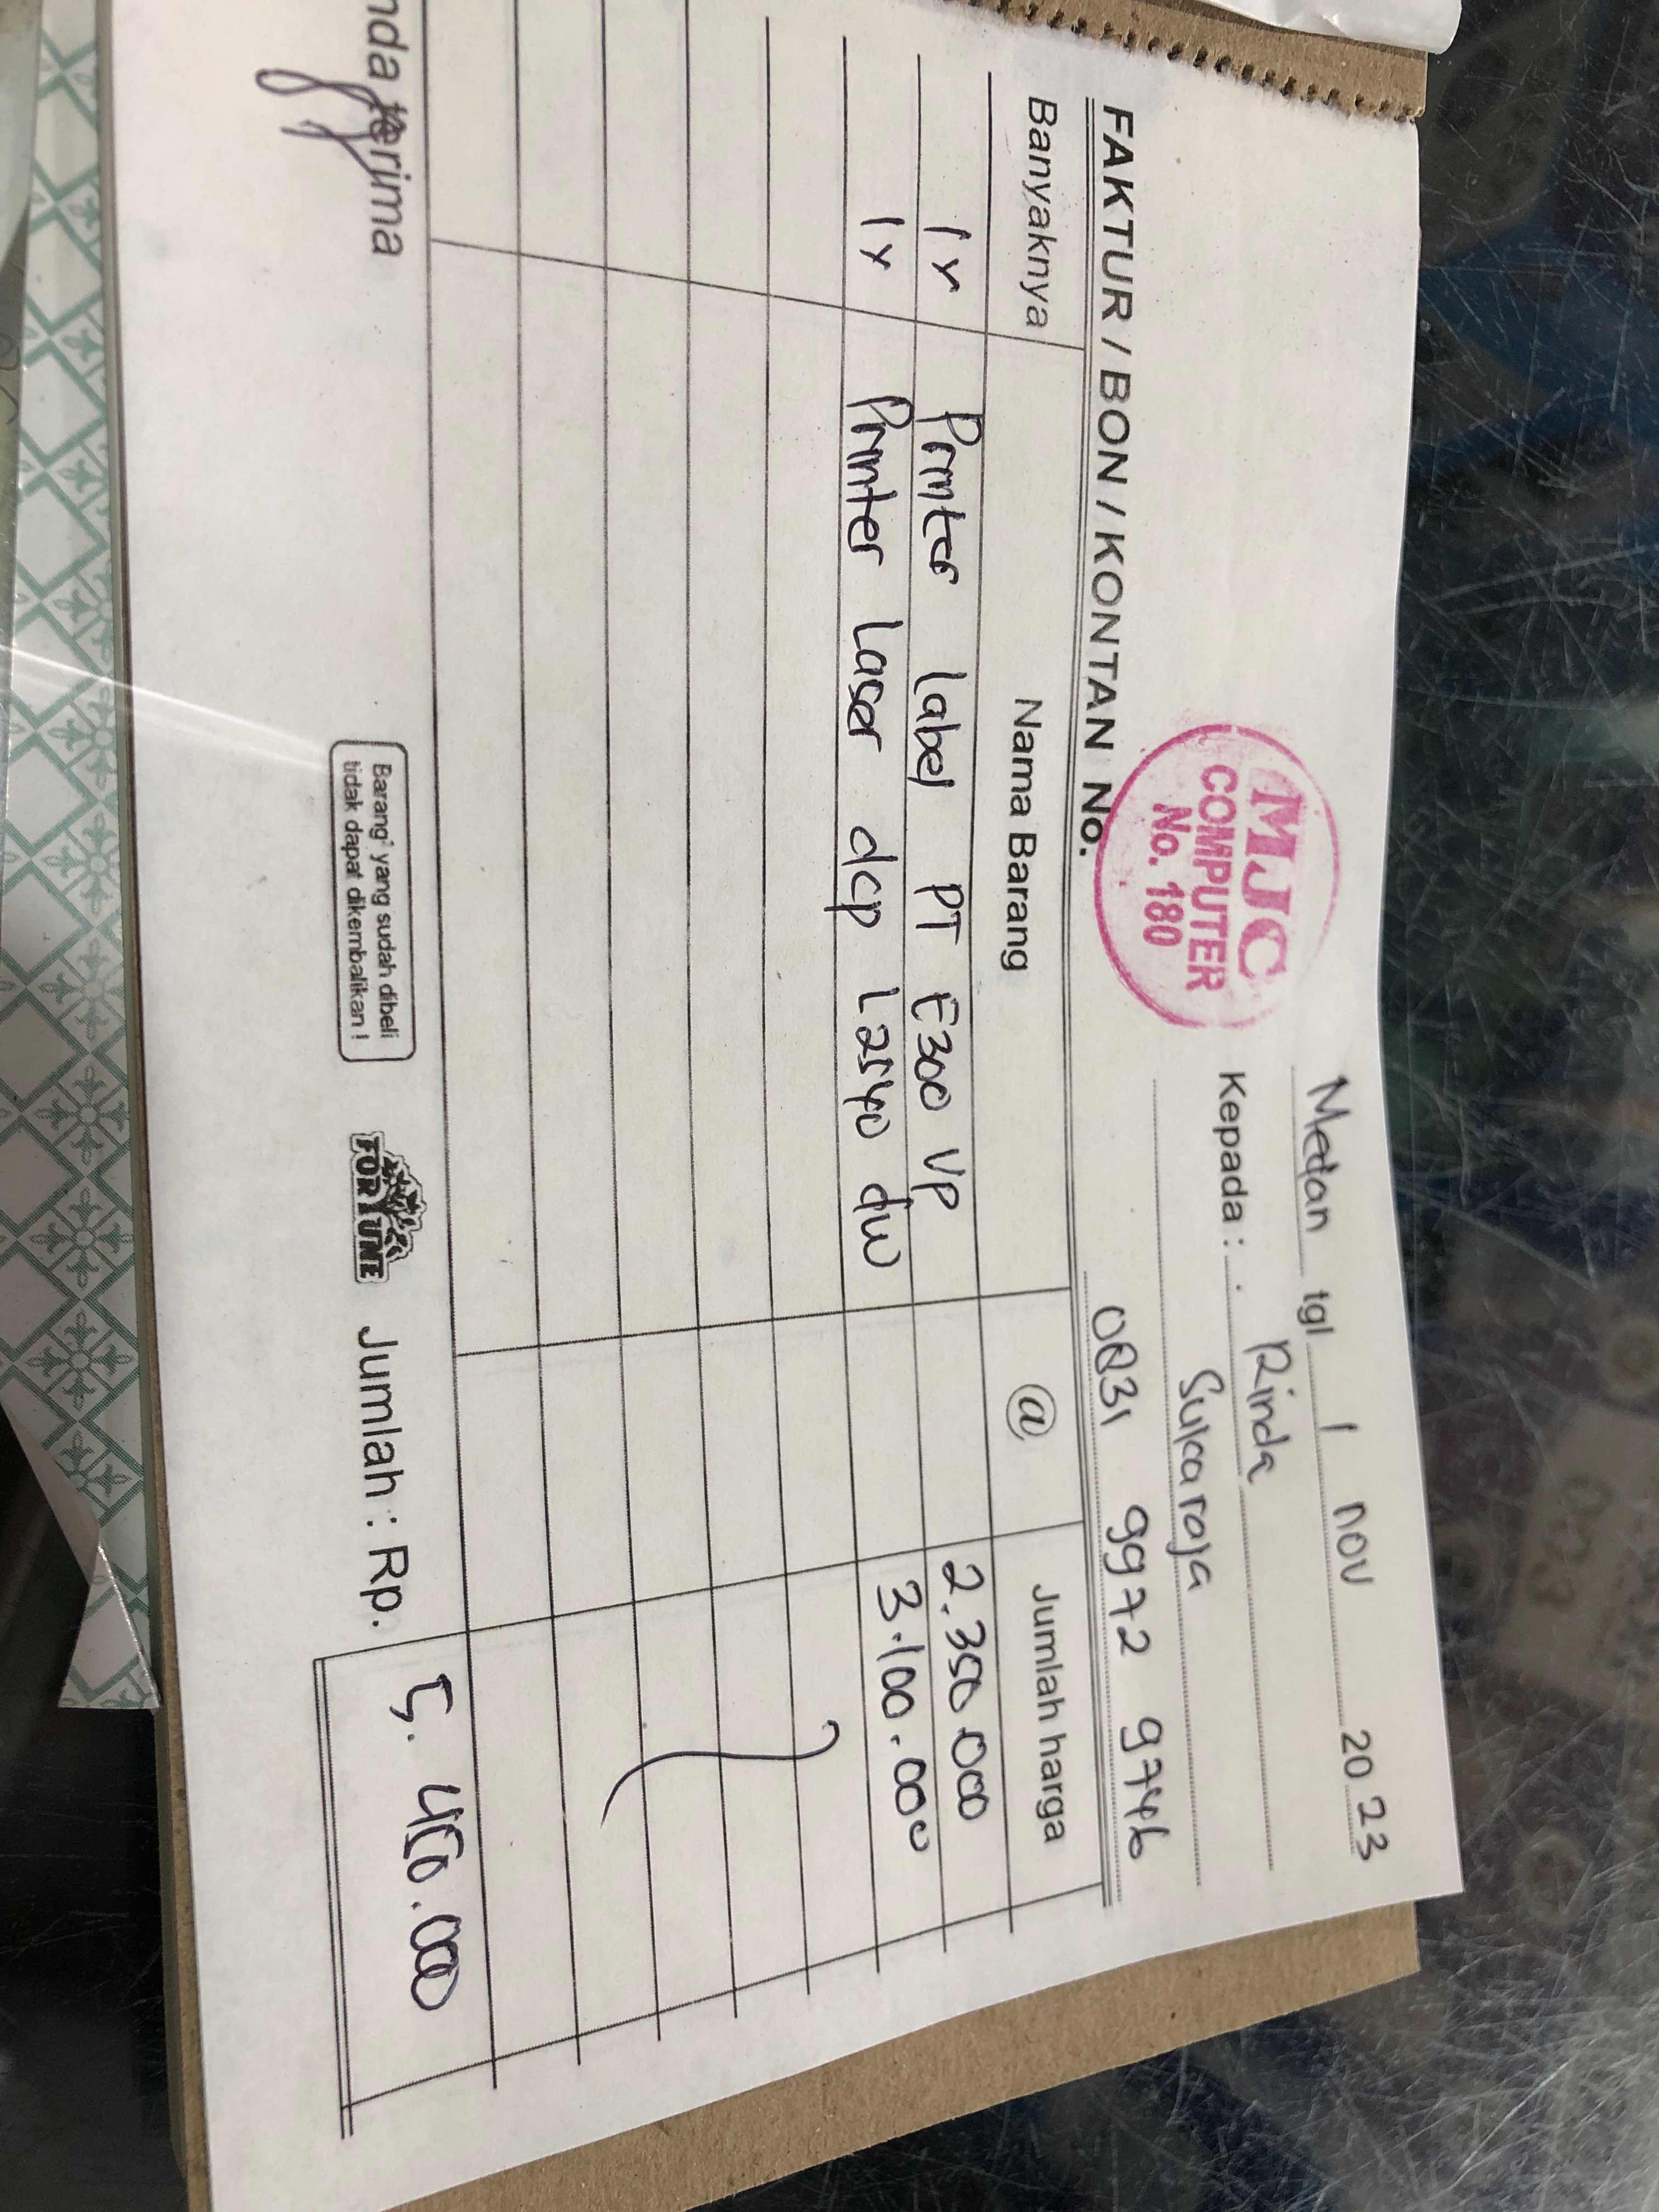 Medan tgl 1 nov 20 23
MJC
COMPUTER
No. 180
Kepada : Rinda
Sukaraja
FAKTUR / BON / KONTAN No.
0831 9972 9746
Banyaknya Nama Barang @ Jumlah harga
1x Printer label PT E300 VP 2.350.000
1x Printer Laser dcp L2540 dw 3.100.000
nda terima
Barang² yang sudah dibeli
tidak dapat dikembalikan !
FORTUNE
Jumlah : Rp. 5.450.000